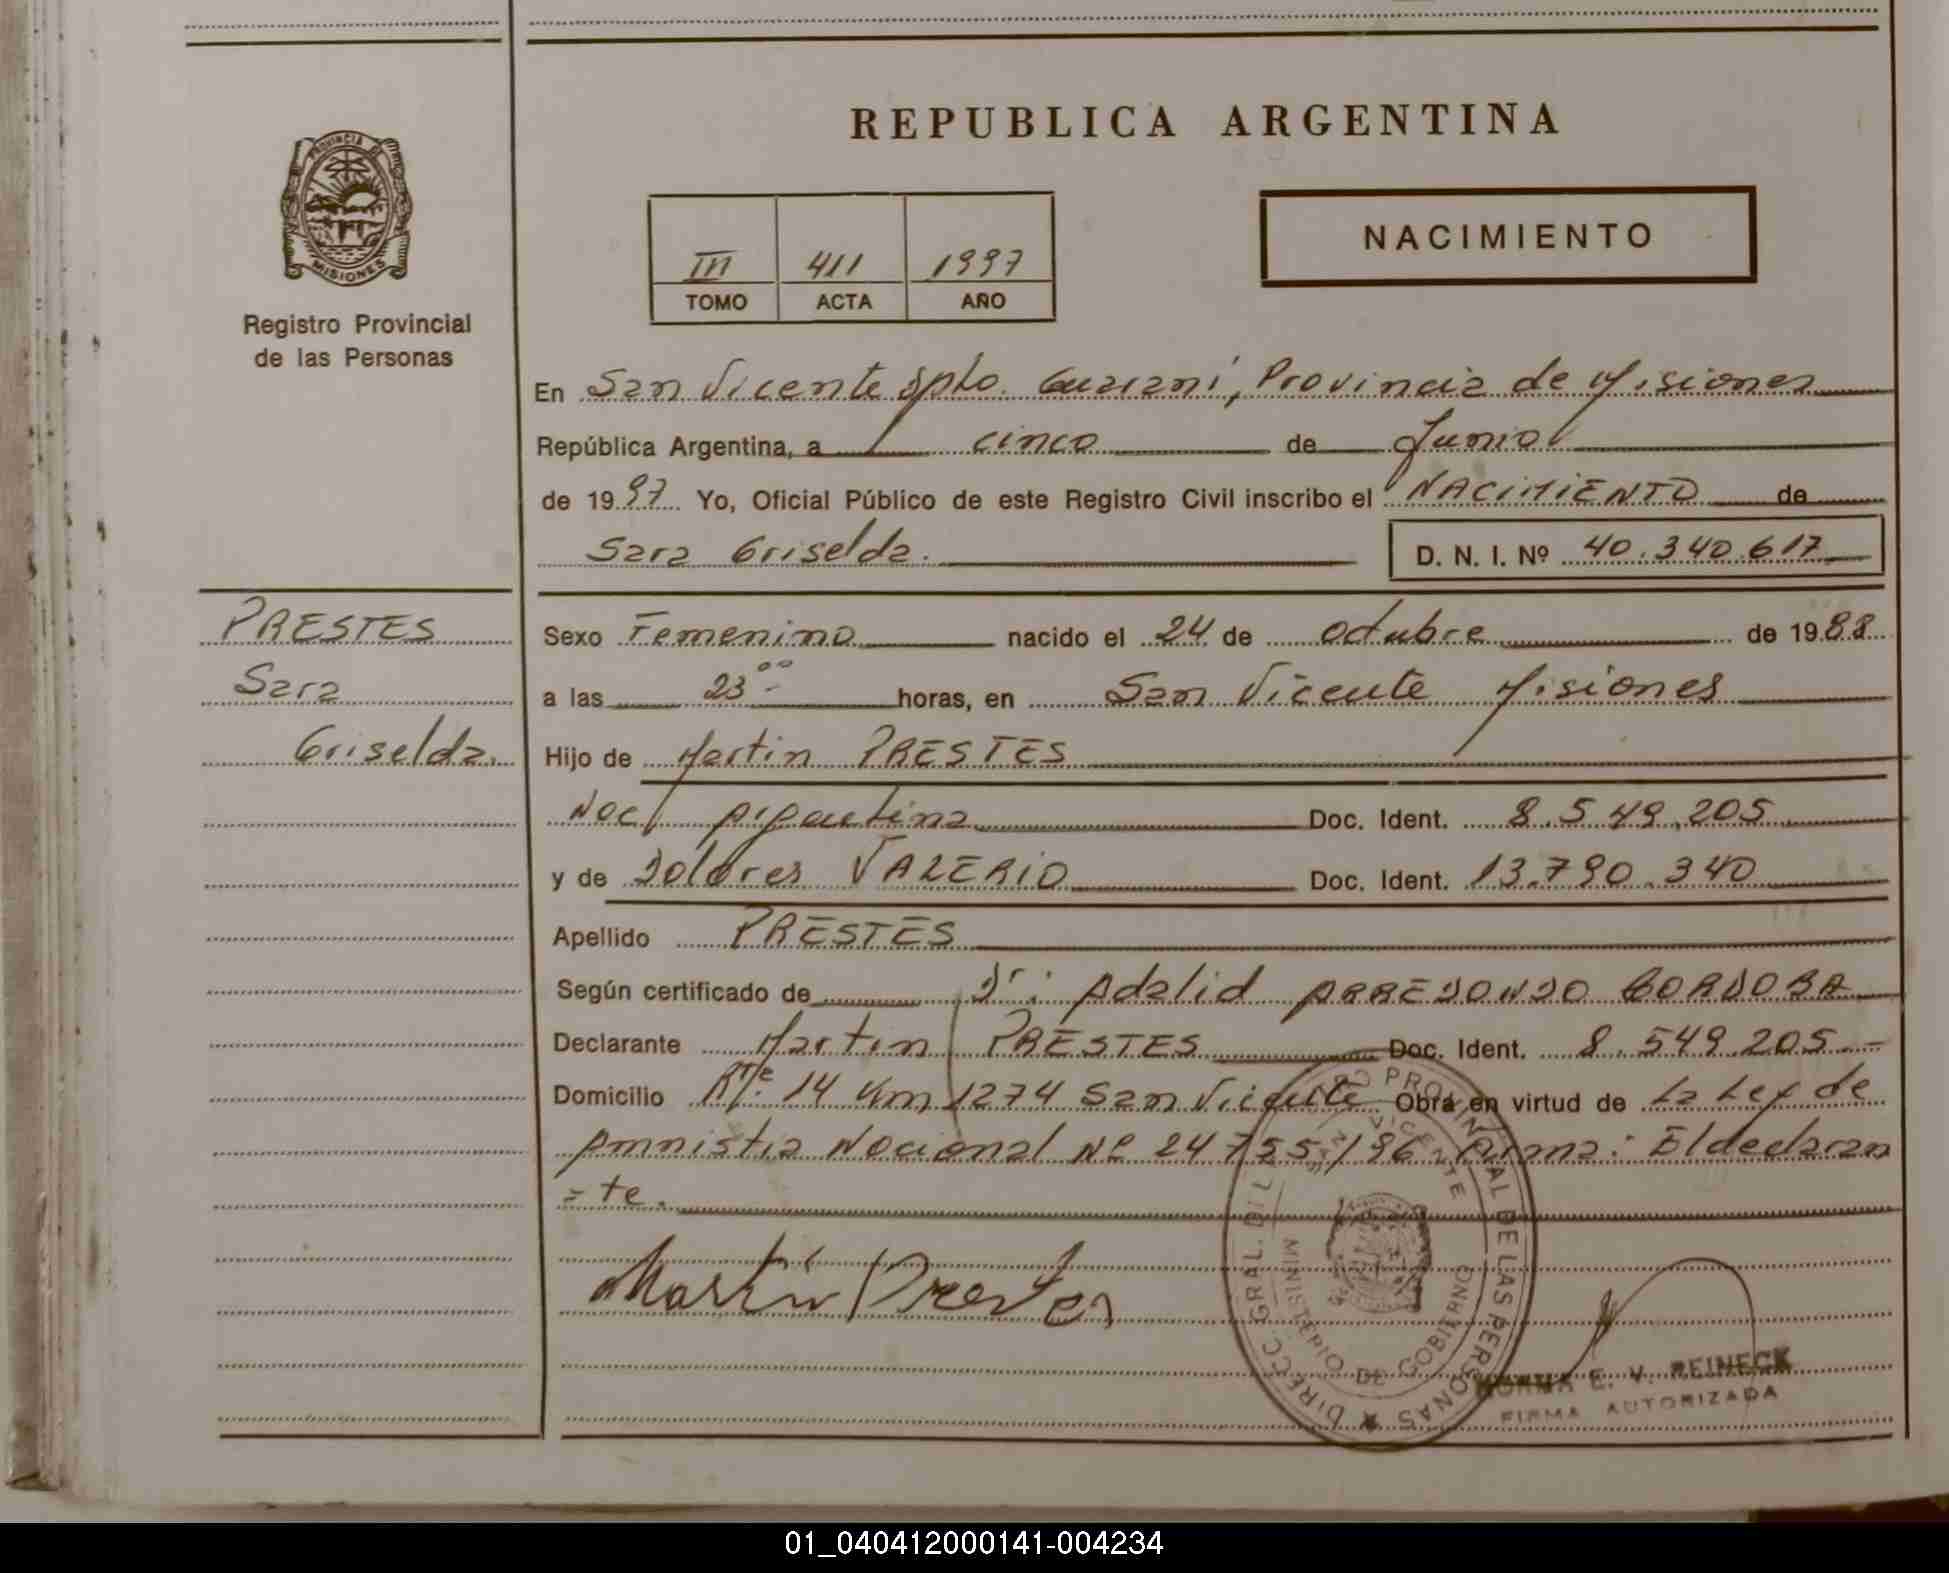 REPUBLICA ARGENTINA
PROVINCIA DE
MISIONES
Registro Provincial
de las Personas
III 411 1997
TOMO ACTA AÑO
NACIMIENTO
En San Vicente Dpto. Guaraní, Provincia de Misiones
República Argentina, a cinco de Junio
de 1997 Yo, Oficial Público de este Registro Civil inscribo el NACIMIENTO de
Sara Griselda.
D. N. I. Nº 40.340.617
PRESTES
Sara
Griselda.
Sexo Femenino nacido el 24 de octubre de 1988
a las 23⁰⁰- horas, en San Vicente Misiones
Hijo de Martin PRESTES
Nac. Argentina Doc. Ident. 8.549.205
y de Dolores VALERIO Doc. Ident. 13.790.340
Apellido PRESTES
Según certificado de Dr: Adalid ARREDONDO CORDOBA
Declarante Martin PRESTES Doc. Ident. 8.549.205-
Domicilio Rta. 14 Km 1274 San Vicente Obra en virtud de La Ley de
Amnistia Nacional Nº 24755/96 Firma: El declaran
=te.
Martin Prestes
DIRECC. GRAL. DEL REGISTRO PROVINCIAL DE LAS PERSONAS
SAN VICENTE
MINISTERIO DE GOBIERNO
NORMA E. V. REINECK
FIRMA AUTORIZADA
01_040412000141-004234